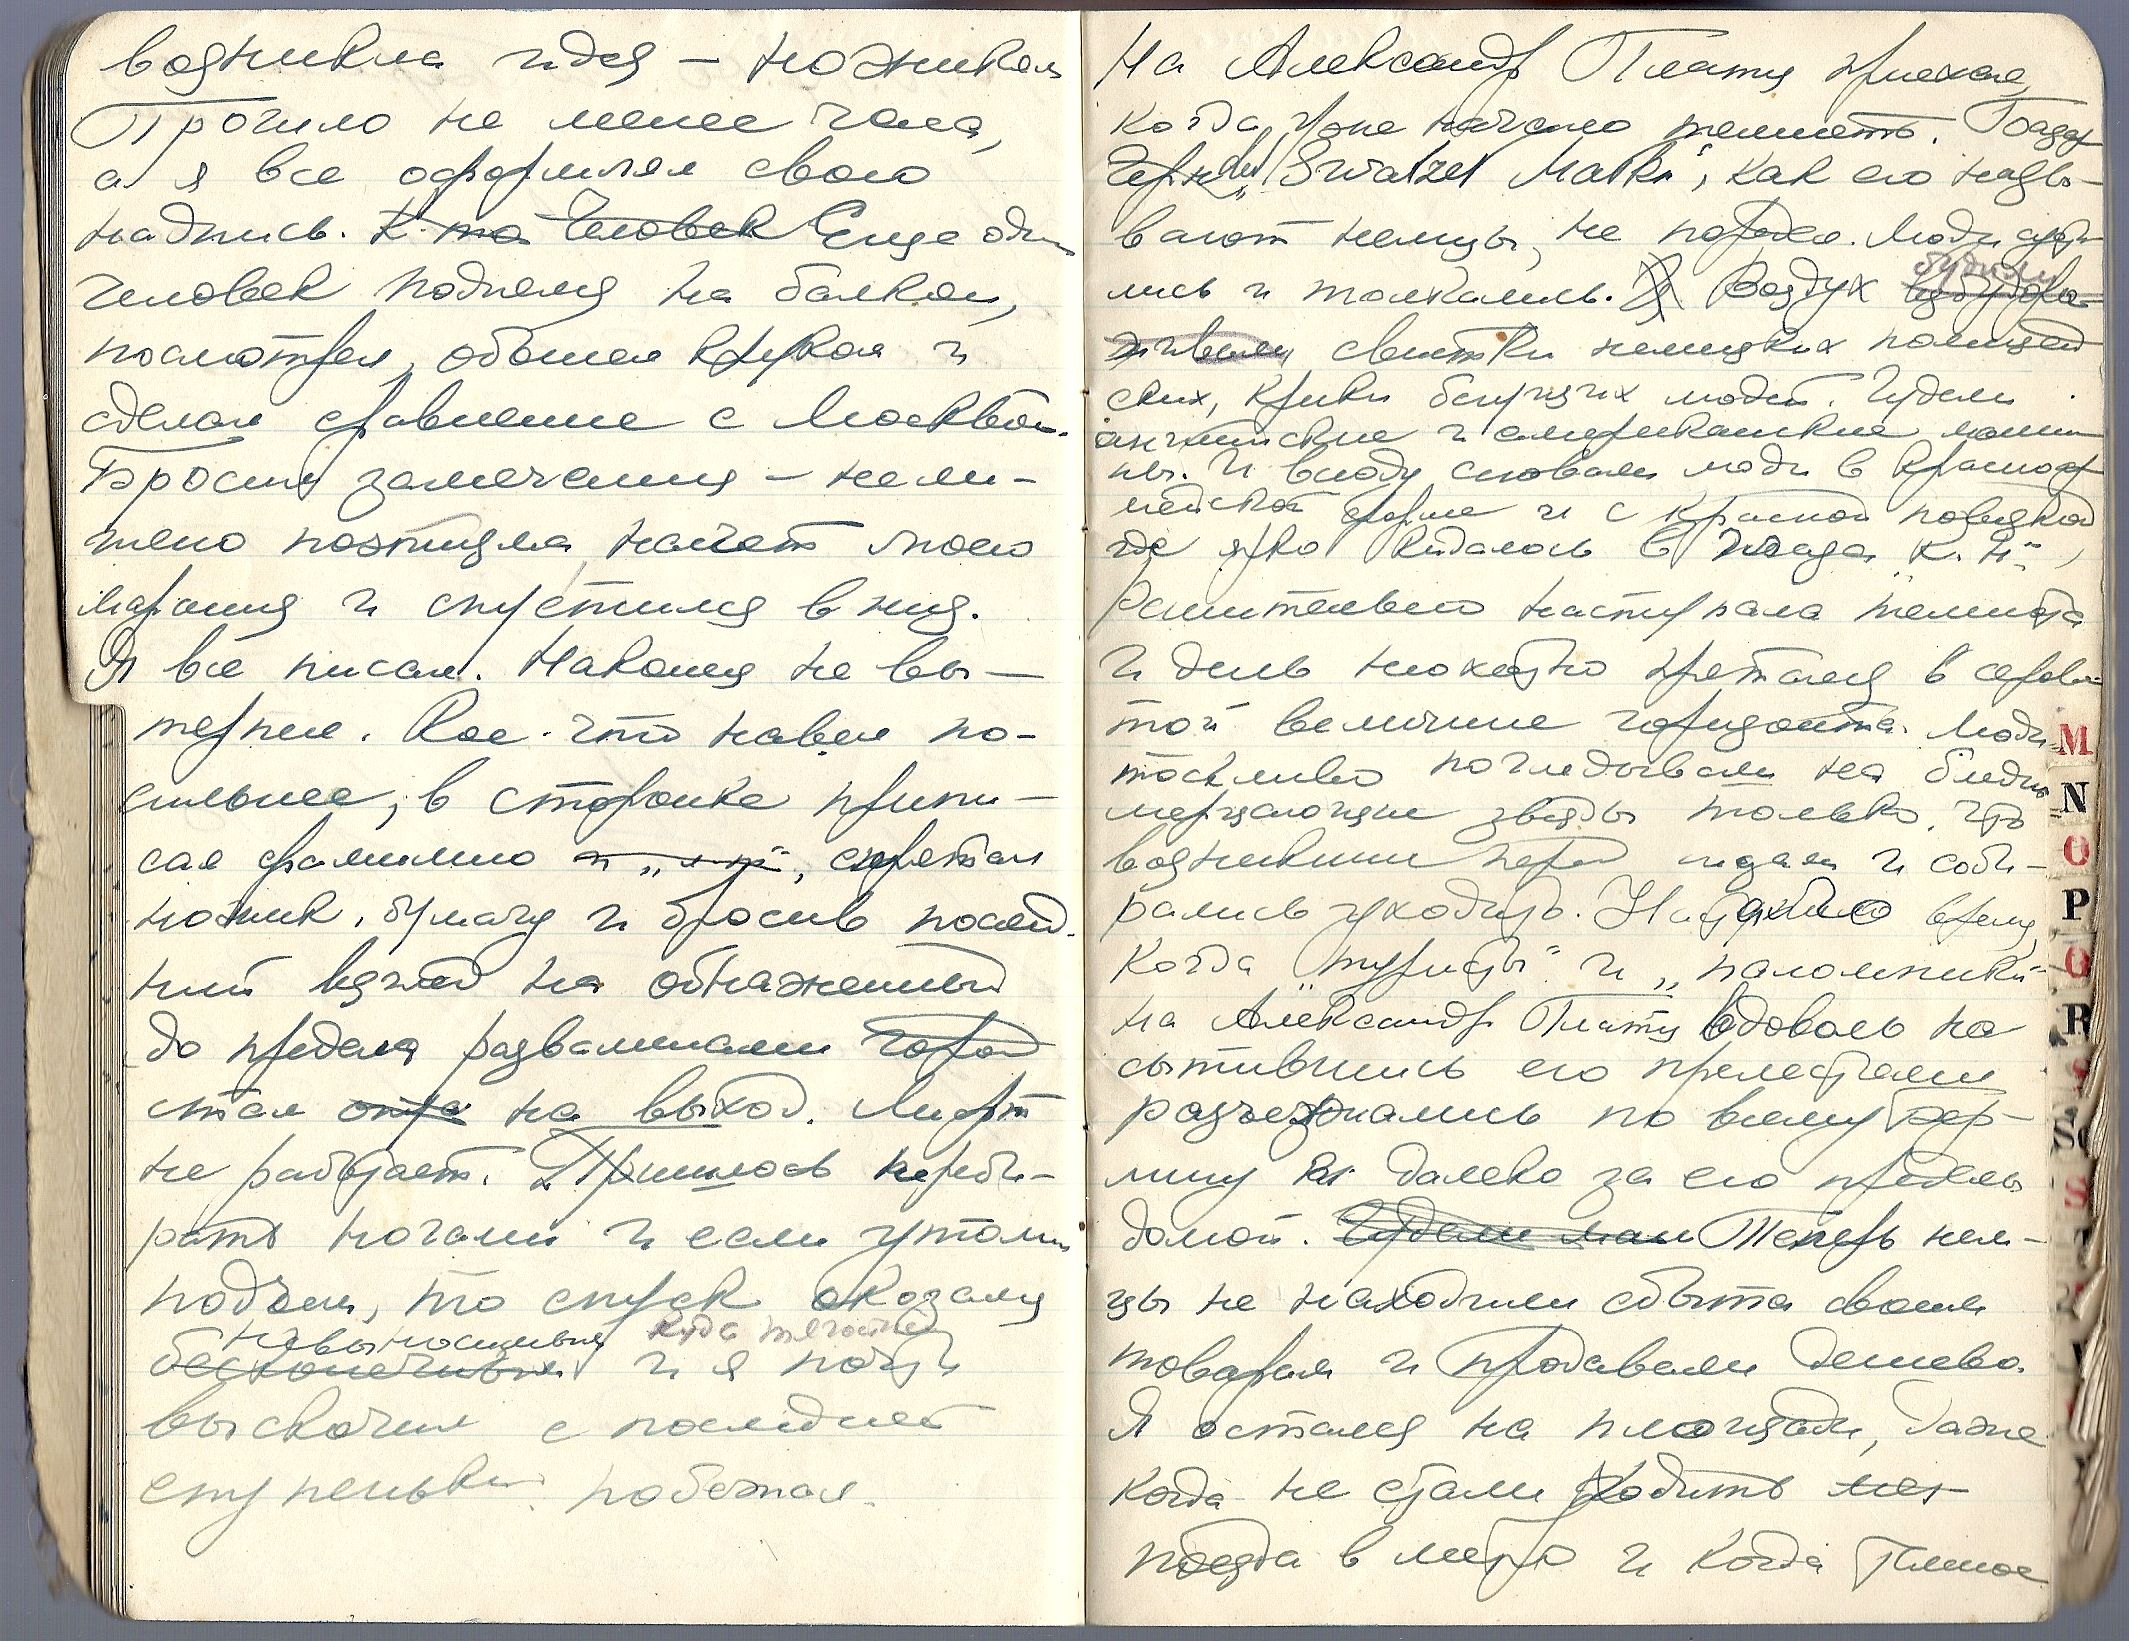 возникла идея — ножиком
Прошло не менее часа,
а я все оформлял свою
надпись. К-то Человек Еще один
человек поднялся на балкон,
посмотрел, обошел кругом и
сделал сравнение с Москвой.
Бросил замечания — нели-
насчет моего
марания и спустился вниз.
Я все писал. Наконец не вы-
терпел. Кое-что навел по-
сильнее, в сторонке припи-
сал фамилию и спрятал
ножик, бумагу и бросив послед-
ний взгляд на обнаженный
до предела развалинами город
стал на выход. Лифт
не работает. Пришлось переби-
рать ногами и если утомил
подъем, то спуск оказался
невыносимым куда тягостней
бесконечным и я почти
выскочил с последней
ступеньки побежал.
На Александр Платц приехал,
когда уже начало темнеть. Базар
Черный „Swatzer Markt“, как его назы-
вают немцы, не поредел. Люди суети-
лись и толкались. Я Воздух взбудора-
будили
живали свистки немецких полицей
ских, крики бегущих людей. Гудели
английские и американские маши-
ны. И всюду сновали люди в красноар-
мейской форме и с красной повязкой
где ярко кидалось в глаза „К. Н“,
Решительно наступала темнота
И день неохотно прятался в серова-
той величине горизонта. Люди
тоскливо поглядывали на бледно
мерцающие звезды только что
возникшие перед и соби-
рались уходить. Наступало время,
когда „туристы“ и „паломники“
на Александр Платц вдоволь на
сытившись его прелестями
разъезжались по всему Бер-
лину и далеко за его пределы
домой. Гудели маши Теперь нем-
цы не находили сбыта своим
товарам и продавали дешево.
Я остался на площади, даже
когда не стали ходить
поезда в метро и когда